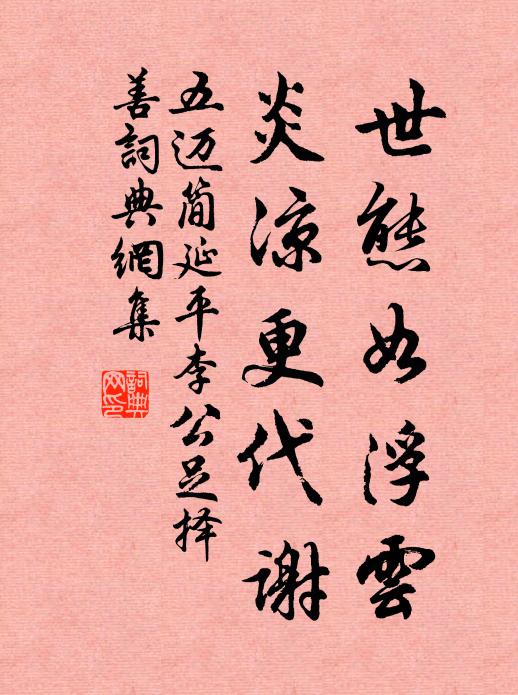 世態如浮雲
炎涼更代謝
五迈简延平李公足择
善詞典網集
詞典
网印